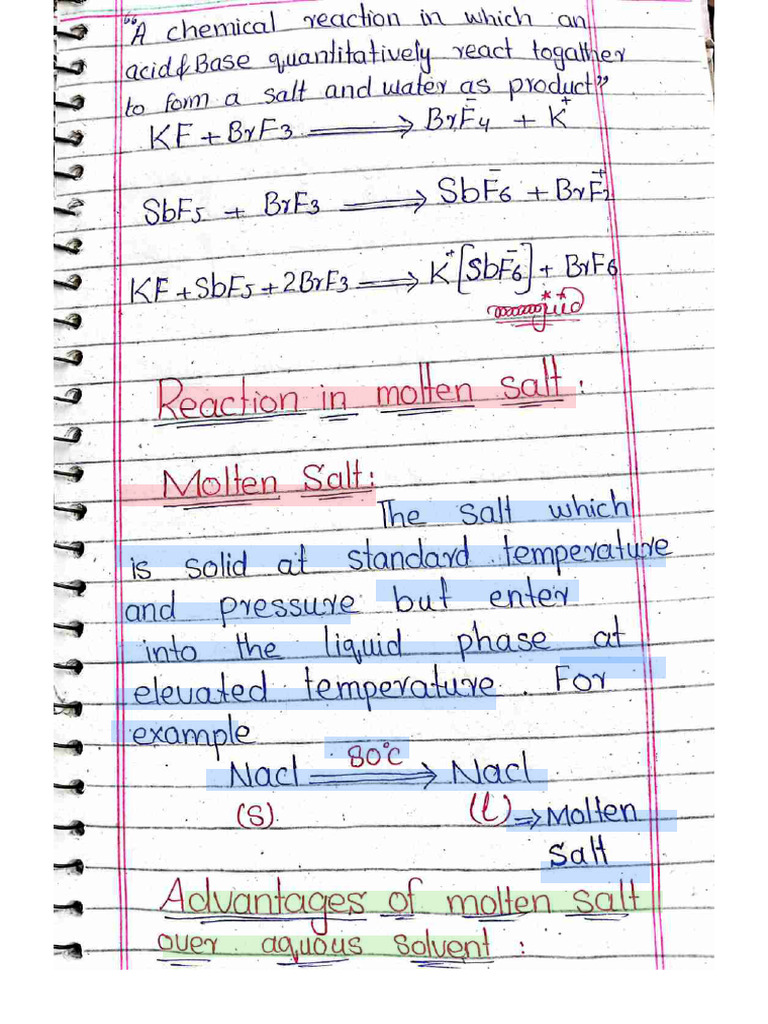 "A chemical reaction in which an
acid & Base quantitatively react togather
to form a salt and water as product"
KF + BrF3 ⟶ BrF4⁻ + K⁺
SbF5 + BrF3 ⟶ SbF6⁻ + BrF2⁺
KF + SbF5 + 2BrF3 ⟶ K⁺[SbF6⁻] + BrF6
Reaction in molten salt :
Molten Salt:
The salt which
is solid at standard temperature
and pressure but enter
into the liquid phase at
elevated temperature . For
example
Nacl 80°C ⟶ Nacl
(S) (l) ⇒ Molten
Salt
Advantages of molten salt
over aquous solvent :